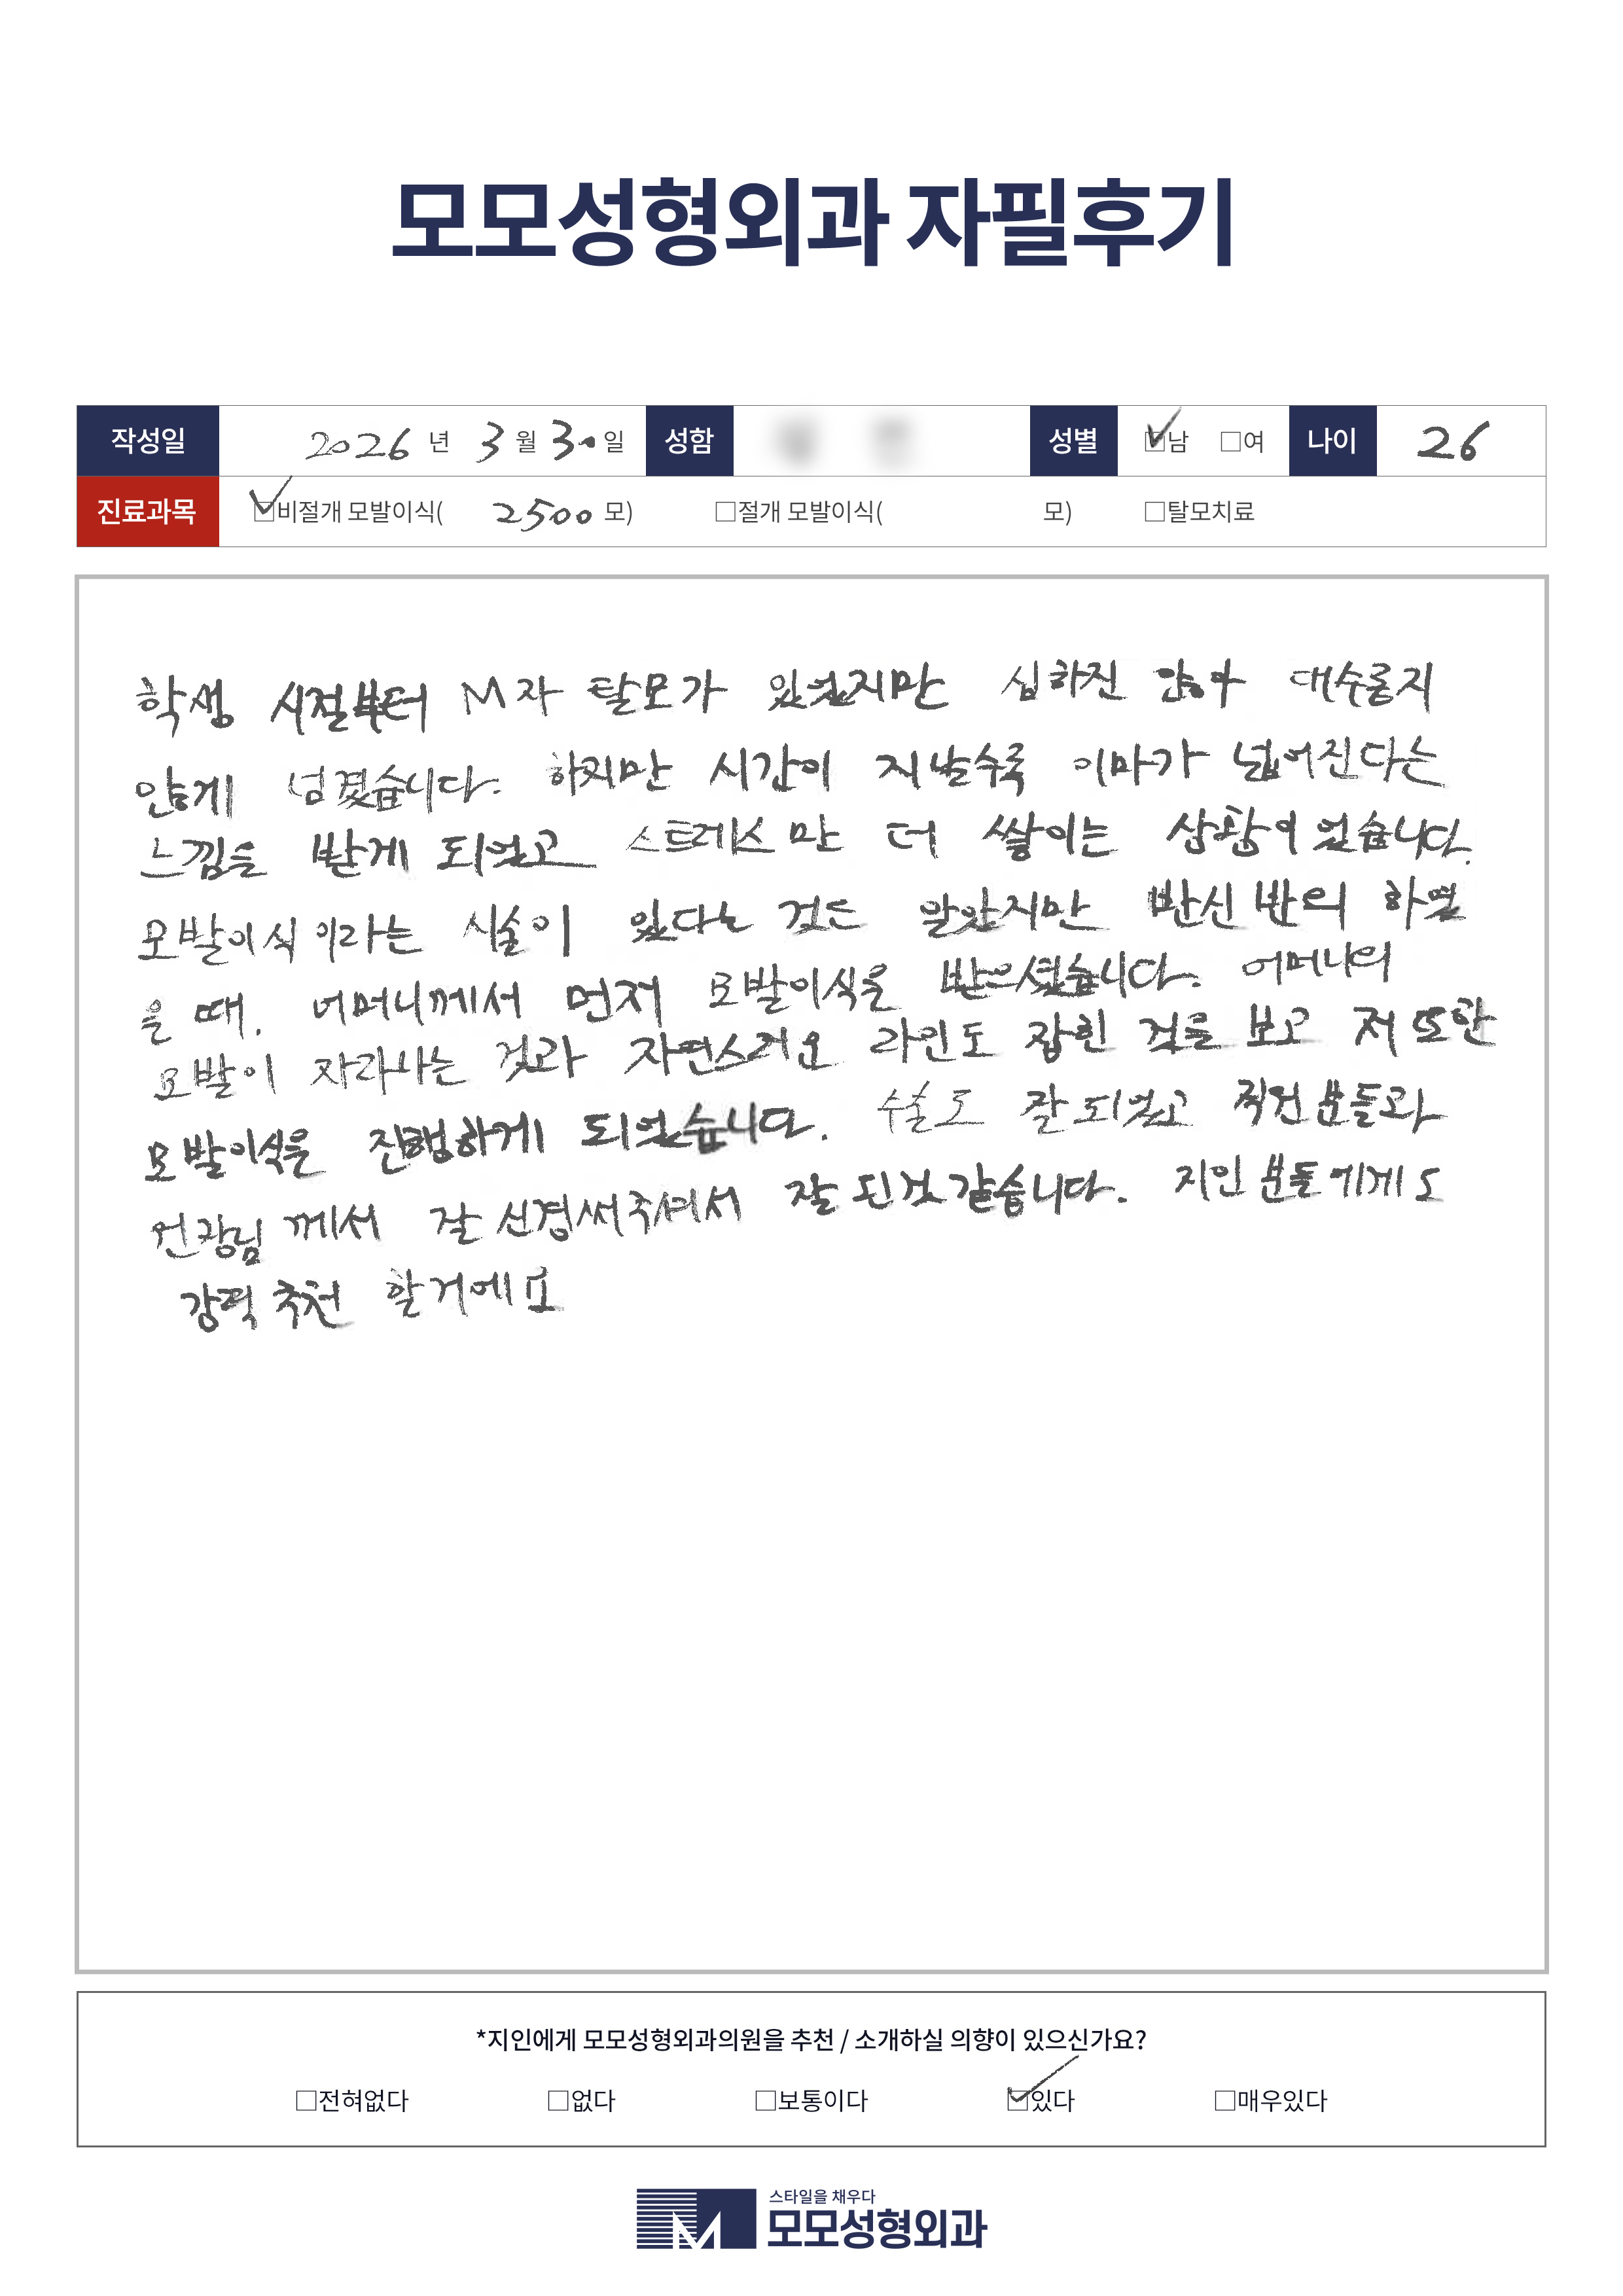 모모성형외과 자필후기
작성일 2026 년 3 월 30 일 성함 성별 ☑남 □여 나이 26
진료과목 ☑비절개 모발이식( 2500 모) □절개 모발이식( 모) □탈모치료
학생 시절부터 M자 탈모가 있었지만 심하진 않아 대수롭지
않게 넘겼습니다. 하지만 시간이 지날수록 이마가 넓어진다는
느낌을 받게 되었고 스트레스만 더 쌓이는 상황이었습니다.
모발이식이라는 시술이 있다는 것은 알았지만 반신반의 하였
을 때, 어머니께서 먼저 모발이식을 받으셨습니다. 어머니의
모발이 자라나는 것과 자연스러운 라인도 잡힌 것을 보고 저 또한
모발이식을 진행하게 되었습니다. 수술도 잘 되었고 직원분들과
원장님께서 잘 신경써주셔서 잘 된것 같습니다. 지인분들에게도
강력 추천 할거에요
*지인에게 모모성형외과의원을 추천 / 소개하실 의향이 있으신가요?
□전혀없다 □없다 □보통이다 ☑있다 □매우있다
스타일을 채우다
모모성형외과